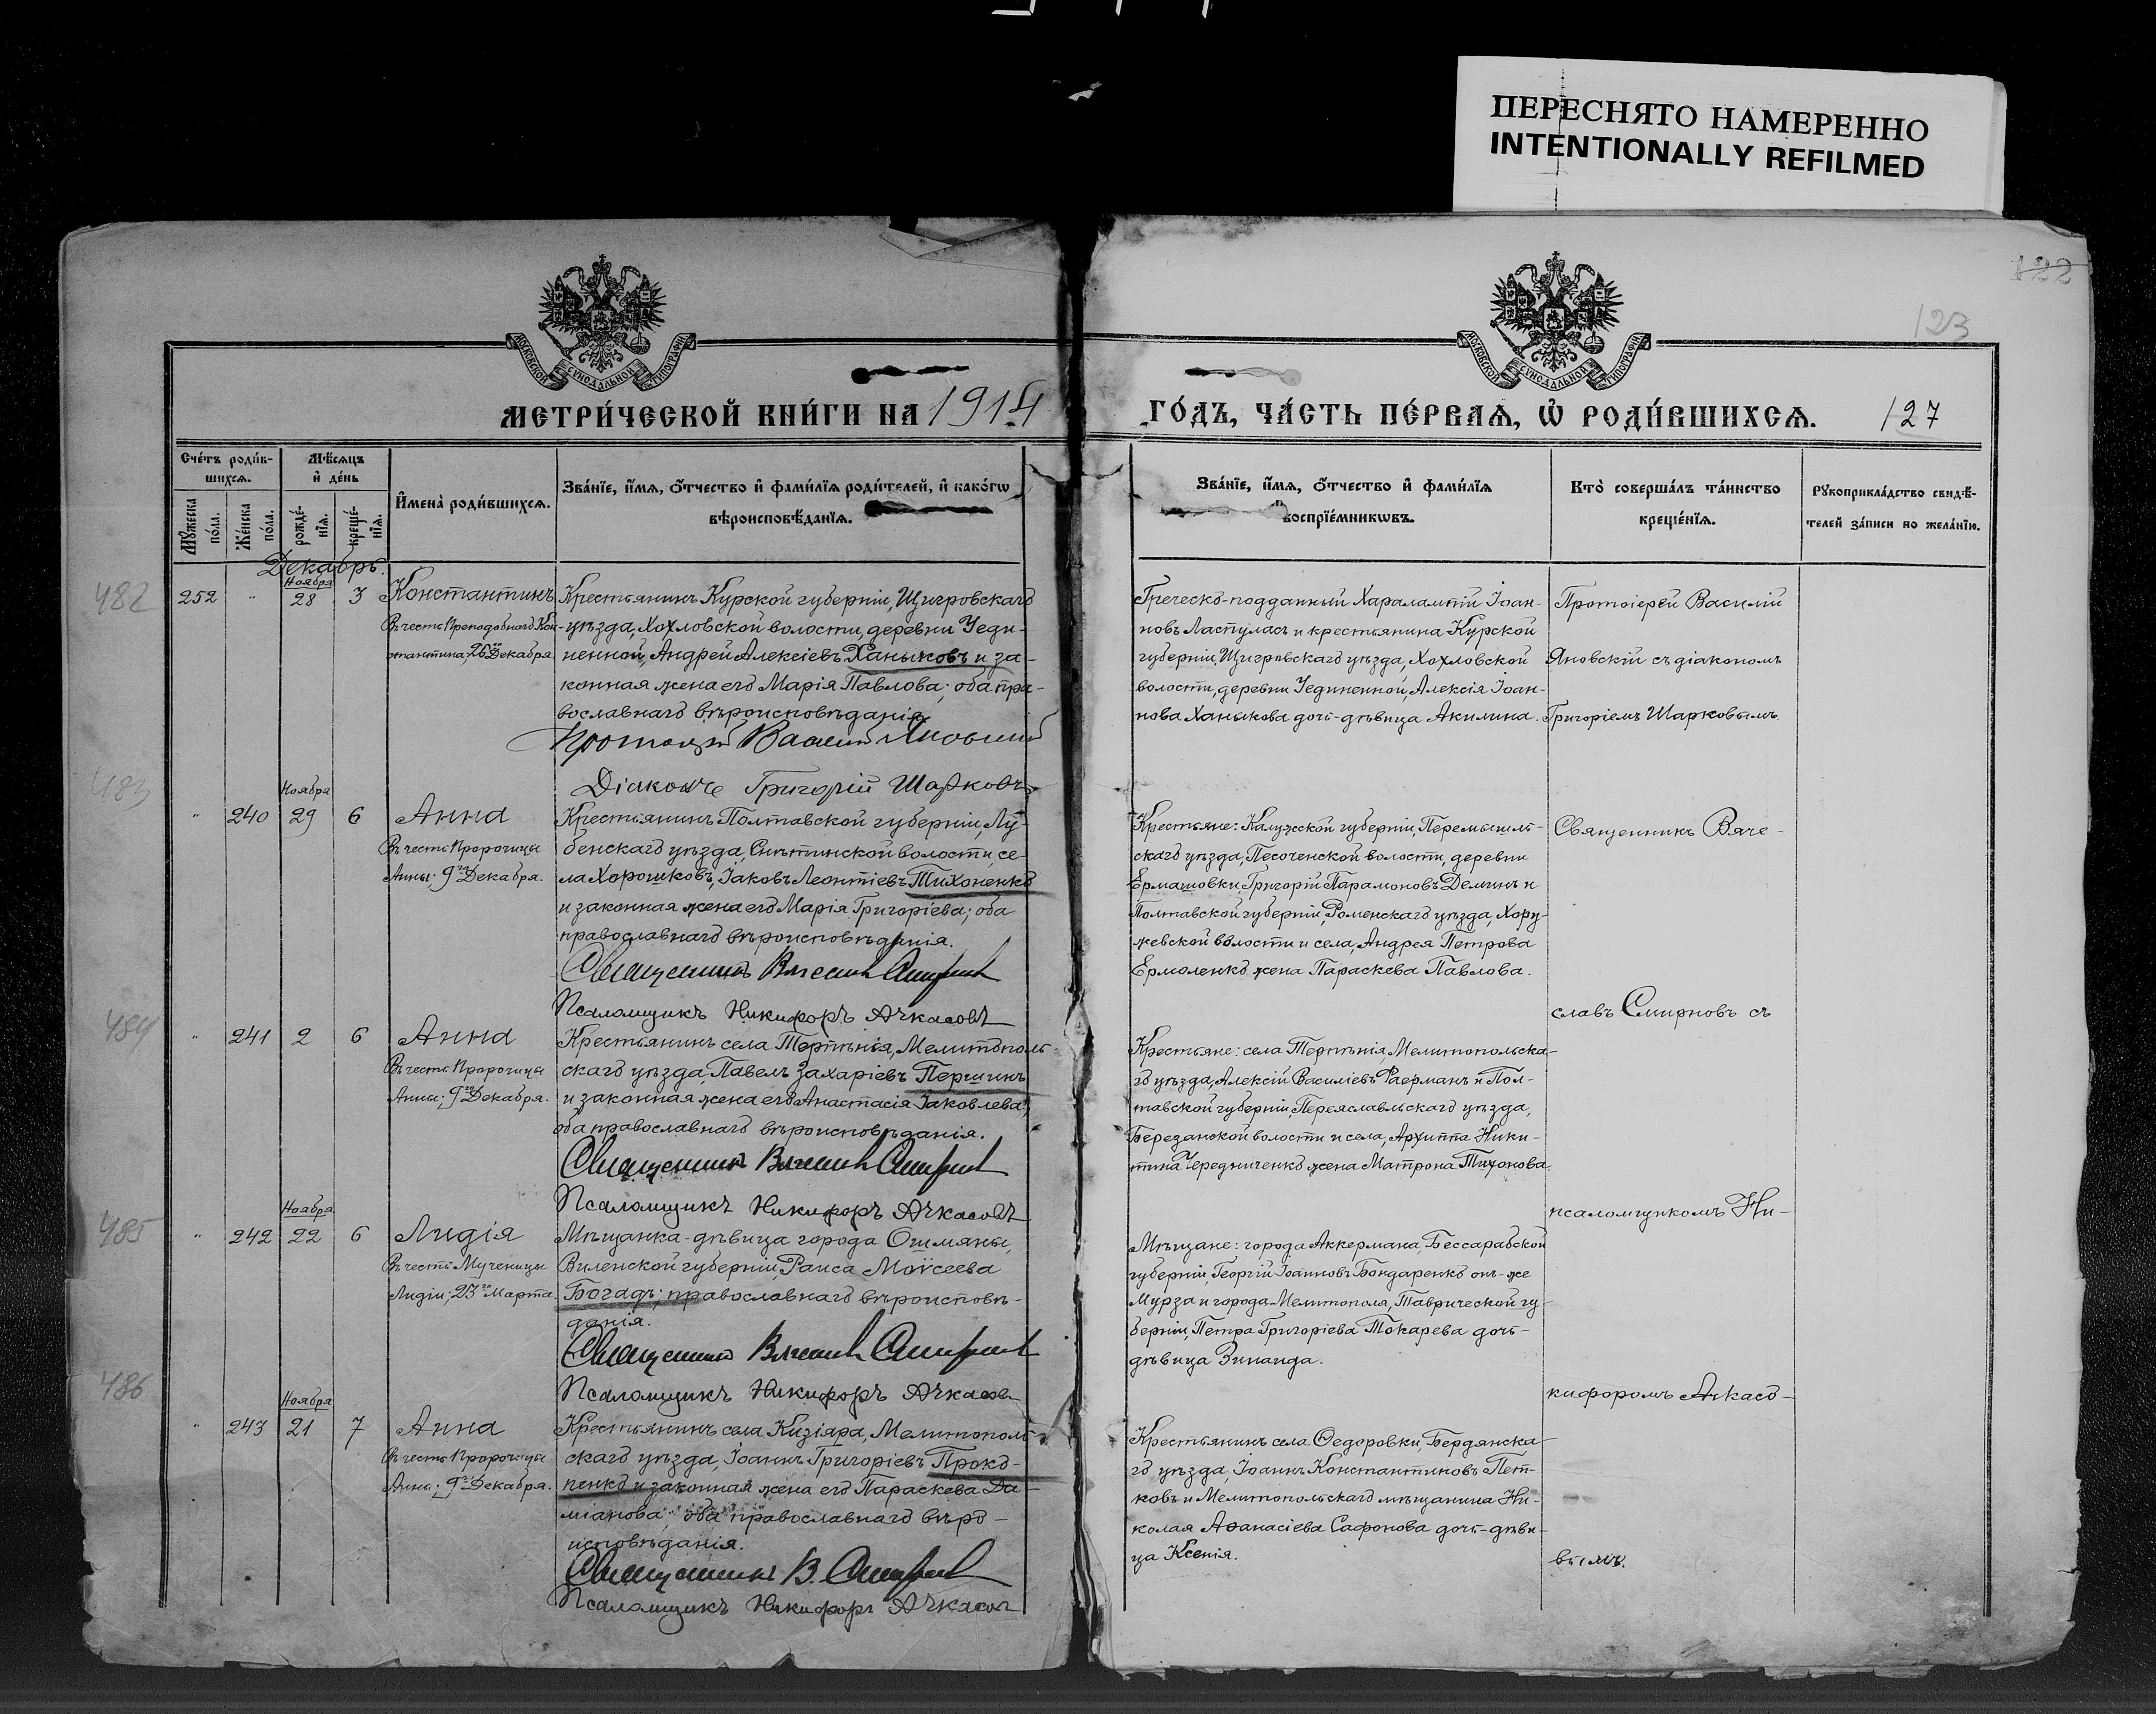 ПЕРЕСНЯТО НАМЕРЕННО
INTENTIONALLY REFILMED
122
123
МОСКОВСКОЙ СѴНОДАЛЬНОЙ ТИПОГРАФІИ
МОСКОВСКОЙ СѴНОДАЛЬНОЙ ТИПОГРАФІИ
МЕТРИ́ЧЕСКОЙ КНИ́ГИ НА 1914
ГО́ДЪ, ЧА́СТЬ ПЕ́РВАѦ, Ѡ҆ РОДИ́ВШИХСѦ. 127
Сче́тъ роди́в-
шихсѧ.
Мꙋ́жеска по́ла.
Же́нска по́ла.
Мѣ́сѧцъ
и҆ де́нь
рожде́-
нїѧ.
креще́-
нїѧ.
И҆мена̀ роди́вшихсѧ.
Зва́нїе, и҆́мѧ, ѻ҆́тчество и҆ фами́лїѧ роди́телей, и҆ како́гѡ
вѣроисповѣ́данїѧ.
Зва́нїе, и҆́мѧ, ѻ҆́тчество и҆ фами́лїѧ
воспрїе́мникѡвъ.
Кто̀ соверша́лъ та́инство
креще́нїѧ.
Рꙋкоприкла́дство свидѣ́-
телей за́писи по жела́нїю.
Декабрь.
482
252 " Ноября 28 3 Константинъ
Въ честь Преподобнаго Кон-
стантина, 26го Декабря
Крестьянинъ Курской губерніи, Щигровскаго
уѣзда, Хохловской волости, деревни Уеди-
ненной, Андрей Алексіевъ Ханыковъ и за-
конная жена его Марія Павлова; оба пра-
вославнаго вѣроисповѣданія.
Протоіерей Василій Яновскій
Діаконъ Григорій Шарковъ
Греческо-подданный Харалампій Іоан-
новъ Ласпуласъ и крестьянина Курской
губерніи, Щигровскаго уѣзда, Хохловской
волости, деревни Уединенной, Алексія Іоан-
нова Ханыкова дочь-дѣвица Акилина.
Протоіерей Василій
Яновскій съ діакономъ
Григоріемъ Шарковымъ.
483
" 240 Ноября 29 6 Анна
Въ честь Пророчицы
Анны; 9го Декабря.
Крестьянинъ Полтавской губерніи Лу-
бенскаго уѣзда, Снѣтинской волости, се-
ла Хорошковъ, Іаковъ Леонтіевъ Тихоненко
и законная жена его Марія Григоріева; оба
православнаго вѣроисповѣданія.
Священникъ Вячеславъ Смирновъ
Псаломщикъ Никифоръ Ачкасовъ
Крестьяне: Калужской губерніи, Перемышль-
скаго уѣзда, Песоченской волости, деревни
Ермашовки, Григорій Парамоновъ Деминъ и
Полтавской губерніи, Роменскаго уѣзда, Хору-
жевской волости и села, Андрея Петрова
Ермоленко жена Параскева Павлова.
Священникъ Вяче-
славъ Смирновъ съ
484
" 241 2 6 Анна
Въ честь Пророчицы
Анны; 9го Декабря.
Крестьянинъ села Терпѣнія, Мелитополь-
скаго уѣзда, Павелъ Захаріевъ Першинъ
и законная жена его Анастасія Іаковлева;
оба православнаго вѣроисповѣданія.
Священникъ Вячеславъ Смирновъ
Псаломщикъ Никифоръ Ачкасовъ
Крестьяне: села Терпѣнія, Мелитопольска-
го уѣзда, Алексій Василіевъ Раерманъ и Пол-
тавской губерніи, Переяславльскаго уѣзда,
Березанской волости и села, Архиппа Ники-
тина Чередниченко жена Матрона Тихонова.
псаломщикомъ Ни-
485
" 242 Ноября 22 6 Лидія
Въ честь Мученицы
Лидіи; 23го Марта.
Мѣщанка-дѣвица города Ошмяны,
Виленской губерніи, Раиса Моѵсеева
Богадъ; православнаго вѣроисповѣ-
данія.
Священникъ Вячеславъ Смирновъ
Псаломщикъ Никифоръ Ачкасовъ
Мѣщане: города Аккермана, Бессарабской
губерніи, Георгій Іоанновъ Бондаренко онъ-же
Мурза и города Мелитополя, Таврической гу-
берніи, Петра Григоріева Токарева дочь-
дѣвица Зинаида.
кифоромъ Ачкасо-
486
" 243 Ноября 21 7 Анна
Въ честь Пророчицы
Анны; 9го Декабря.
Крестьянинъ села Кизіяра, Мелитополь-
скаго уѣзда, Іоаннъ Григоріевъ Проко-
пенко и законная жена его Параскева Да-
міанова; оба православнаго вѣро-
исповѣданія.
Священникъ В. Смирновъ
Псаломщикъ Никифоръ Ачкасовъ
Крестьянинъ села Ѳедоровки, Бердянска-
го уѣзда, Іоаннъ Константиновъ Пет-
ковъ и Мелитопольскаго мѣщанина Ни-
колая Аѳанасіева Сафонова дочь-дѣви-
ца Ксенія.
вымъ.